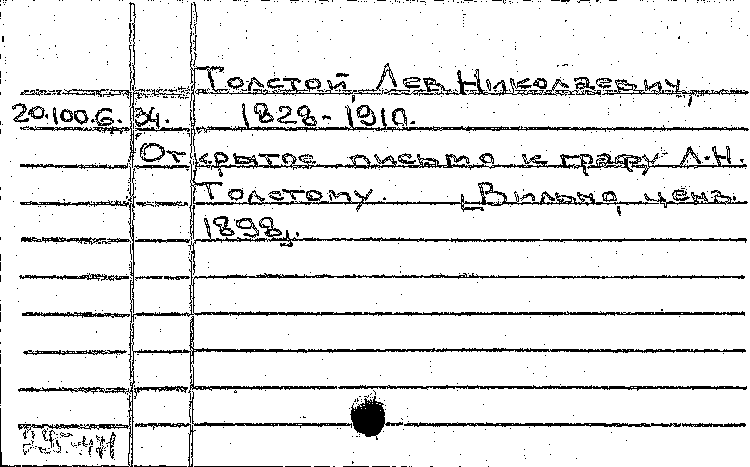 Толстой, Лев Николаевич,
20.100.6.34. 1828-1910.
Открытое письмо к графу Л.Н.
Толстому. [Вильна, ценз.
1898].
295-471